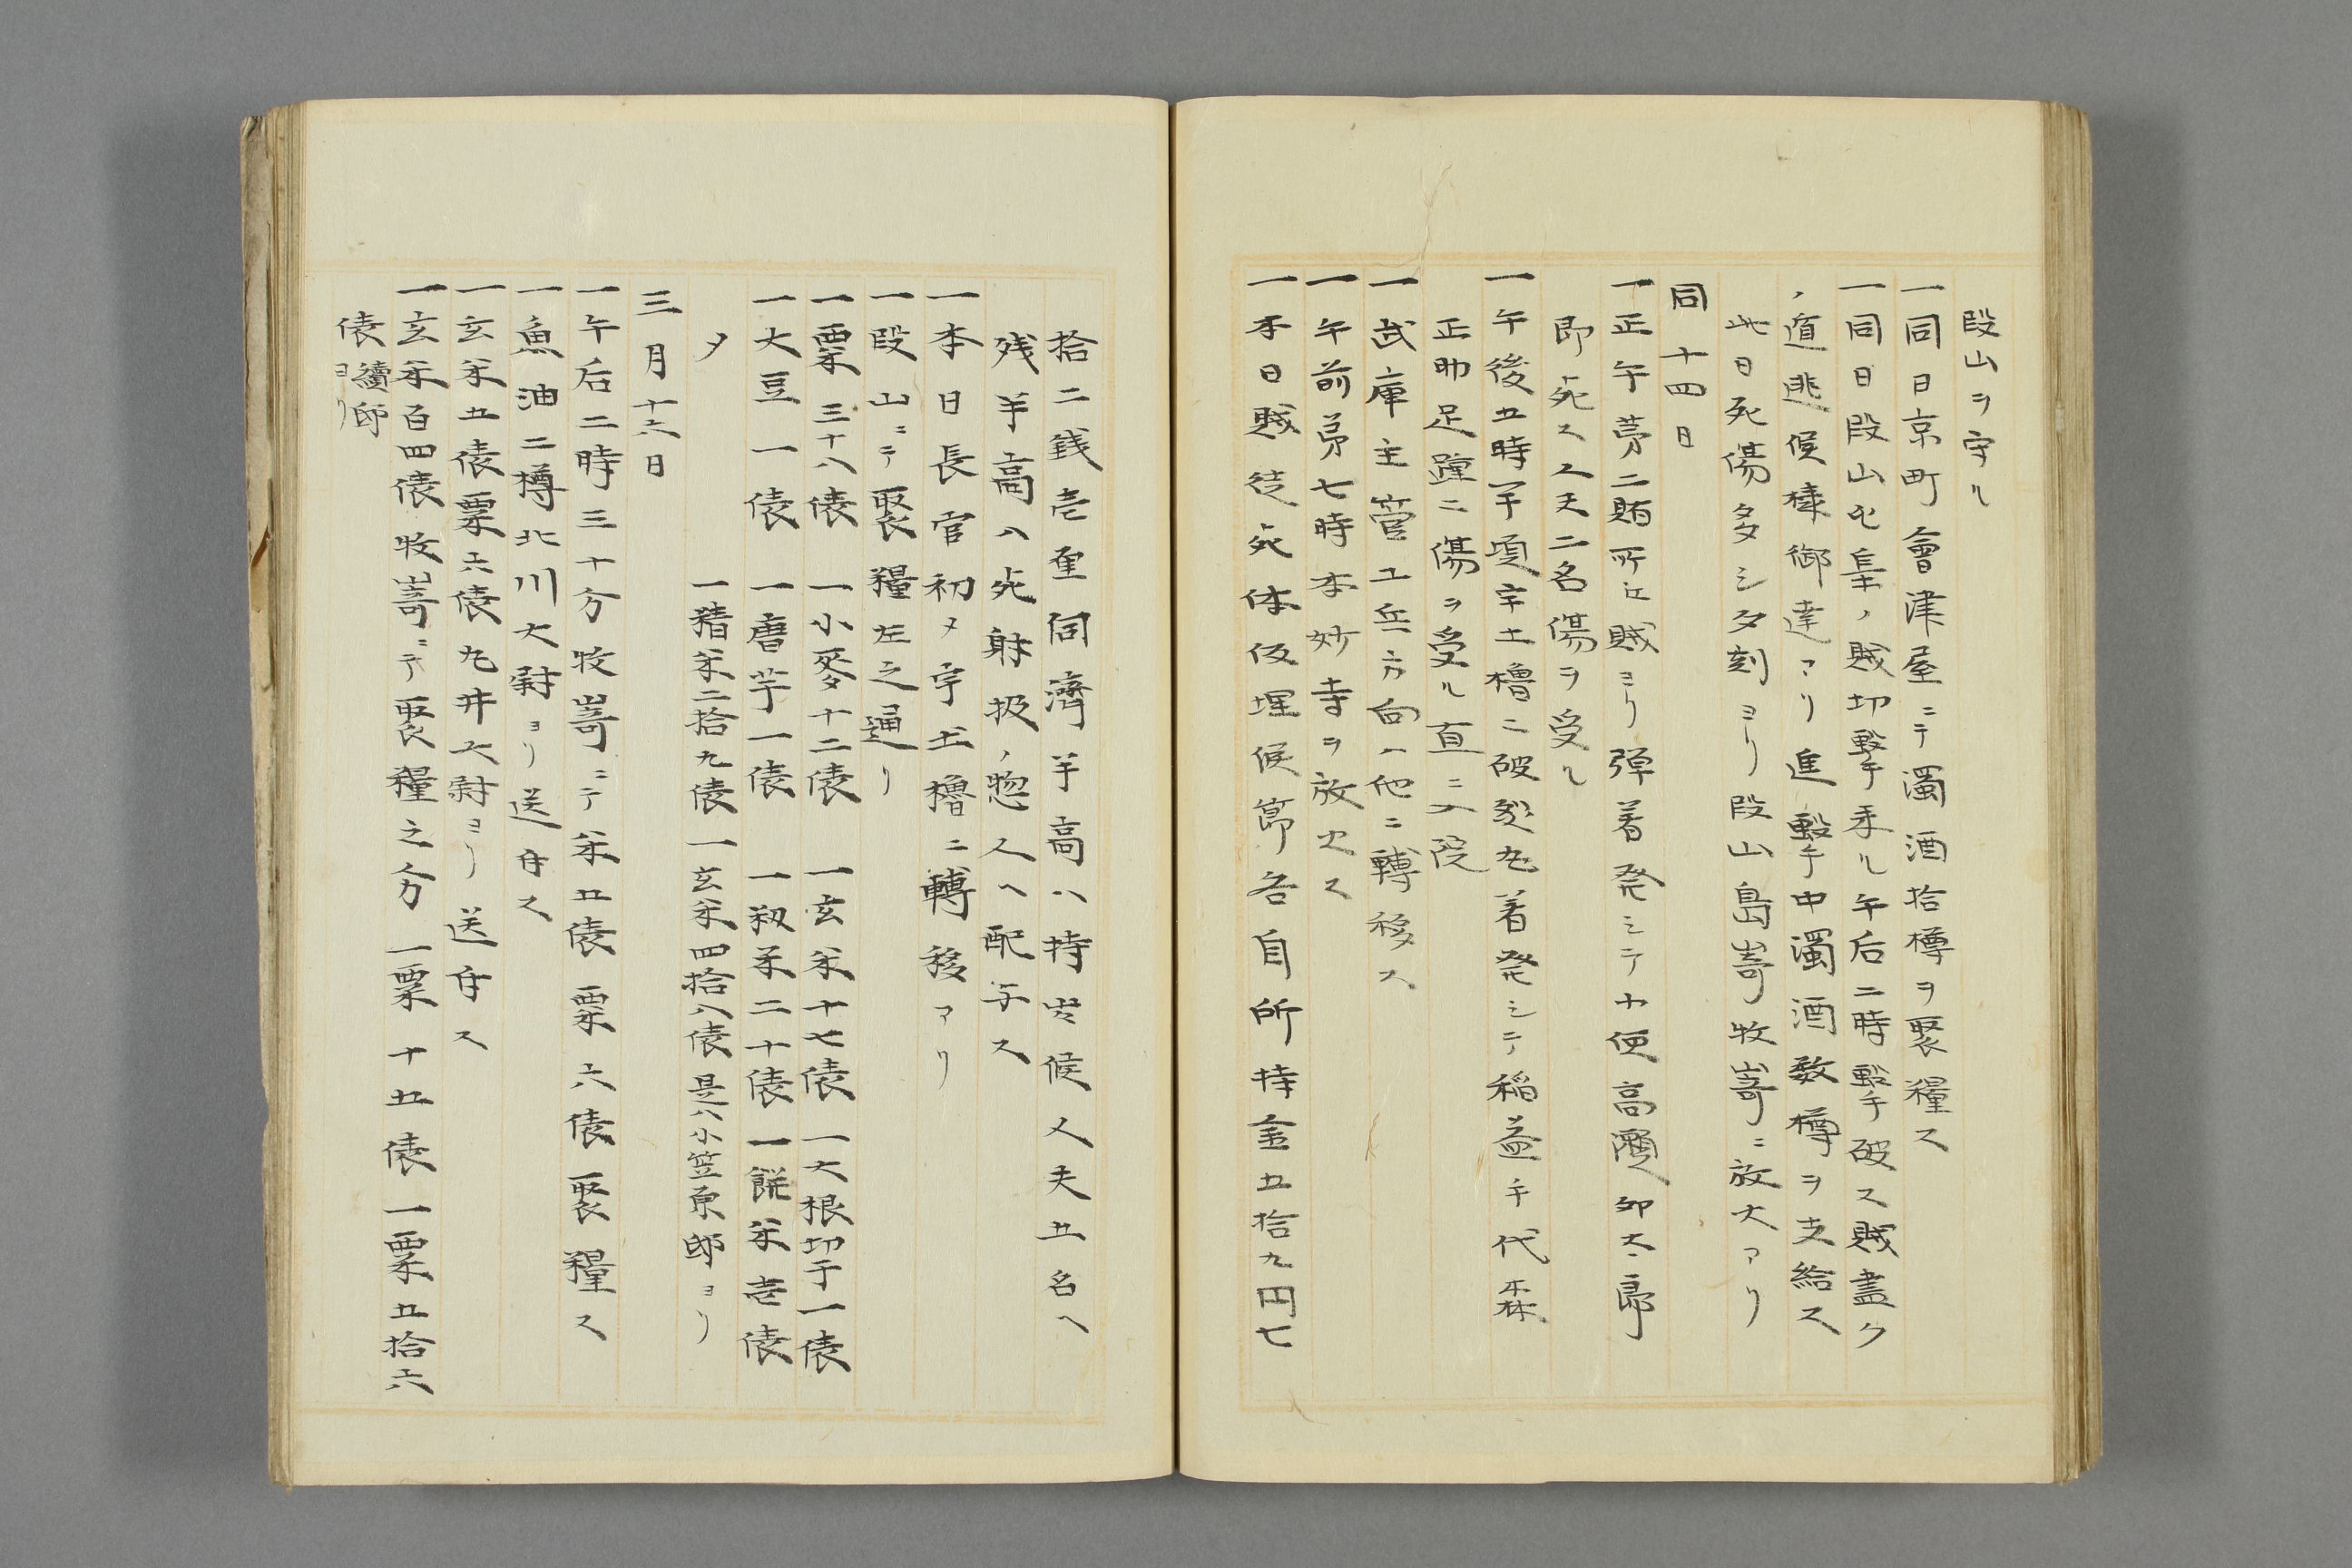 段山ヲ守ル
一同日京町會津屋ニテ濁酒拾樽ヲ聚糧ス
一同日段山屯集ノ賊切擊来ル午后二時擊破ス賊盡ク
ノ遁逃候様御達アリ進擊中濁酒数樽ヲ支給ス
此日死傷多シ夕刻ヨリ段山島嵜牧嵜ニ放火アリ
同十四日
一正午第二賄所江賊ヨリ弾着発シテ小使高瀬卯太郎
即死ス人夫二名傷ヲ受ル
一午後五時半頃宇土櫓ニ破裂丸着発シテ稲益千代森
正助足踵ニ傷ヲ受ル直ニ入院
一武庫主管工兵方向ヘ他ニ轉移ス
一午前第七時本妙寺ヲ放火ス
一本日賊徒死体仮埋候節各自所持金五拾九円七
拾二銭壱厘伺濟半高ハ持出候人夫五名ヘ
残半高ハ死躰扱ノ惣人ヘ配与ス
一本日長官初メ宇土櫓ニ轉移アリ
一段山ニテ聚糧左之通リ
一粟三十八俵 一小麥十二俵 一玄米十七俵 一大根切干一俵
一大豆一俵 一唐芋一俵 一籾米二十俵 一餅米壱俵
〆 一精米二拾九俵 一玄米四拾八俵是ハ小笠原邸ヨリ
三月十六日
一午后二時三十分牧嵜ニテ米五俵粟六俵聚糧ス
一魚油二樽北川大尉ヨリ送付ス
一玄米五俵粟六俵九井大尉ヨリ送付ス
一玄米百四俵牧嵜ニテ聚糧之分 一粟十五俵 一粟五拾六
俵續邸ヨリ